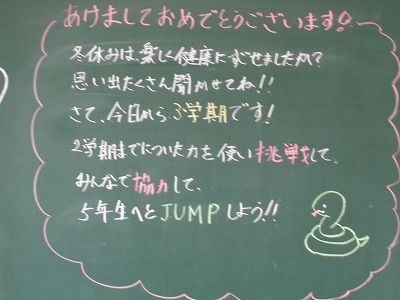 あけましておめでとうございます!
冬休みは、楽しく健康にすごせましたか?
思い出たくさん聞かせてね!!
さて、今日から3学期です!
2学期までについた力を使い挑戦して、
みんなで協力して、
5年生へとJUMPしよう!!